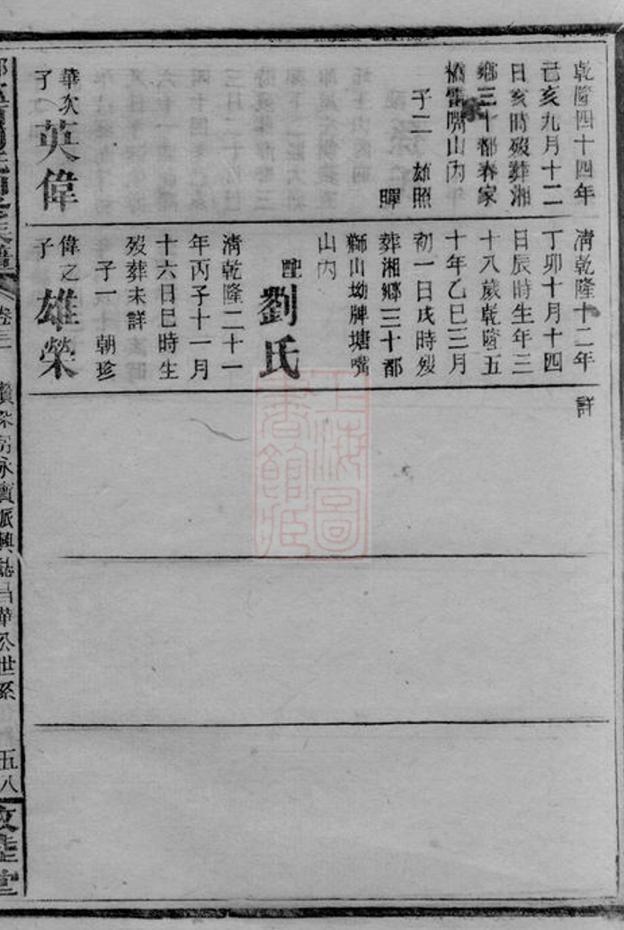 乾隆四十四年
己亥九月十二
日亥時歿葬湘
鄉三十都春家
橋雷嘴山內
子二 雄照
暉
華次子英偉
清乾隆十二年
丁卯十月十四
日辰時生年三
十八歲乾隆五
十年乙巳三月
初一日戌時歿
葬湘鄉三十都
獅山坳牌塘嘴
山內
配劉氏
清乾隆二十一
年丙子十一月
十六日巳時生
歿葬未詳
子一 朝珍
偉之子雄榮
詳
卷三
永寶派興誌昌華公世系
五八
敦睦堂
上海圖書館藏